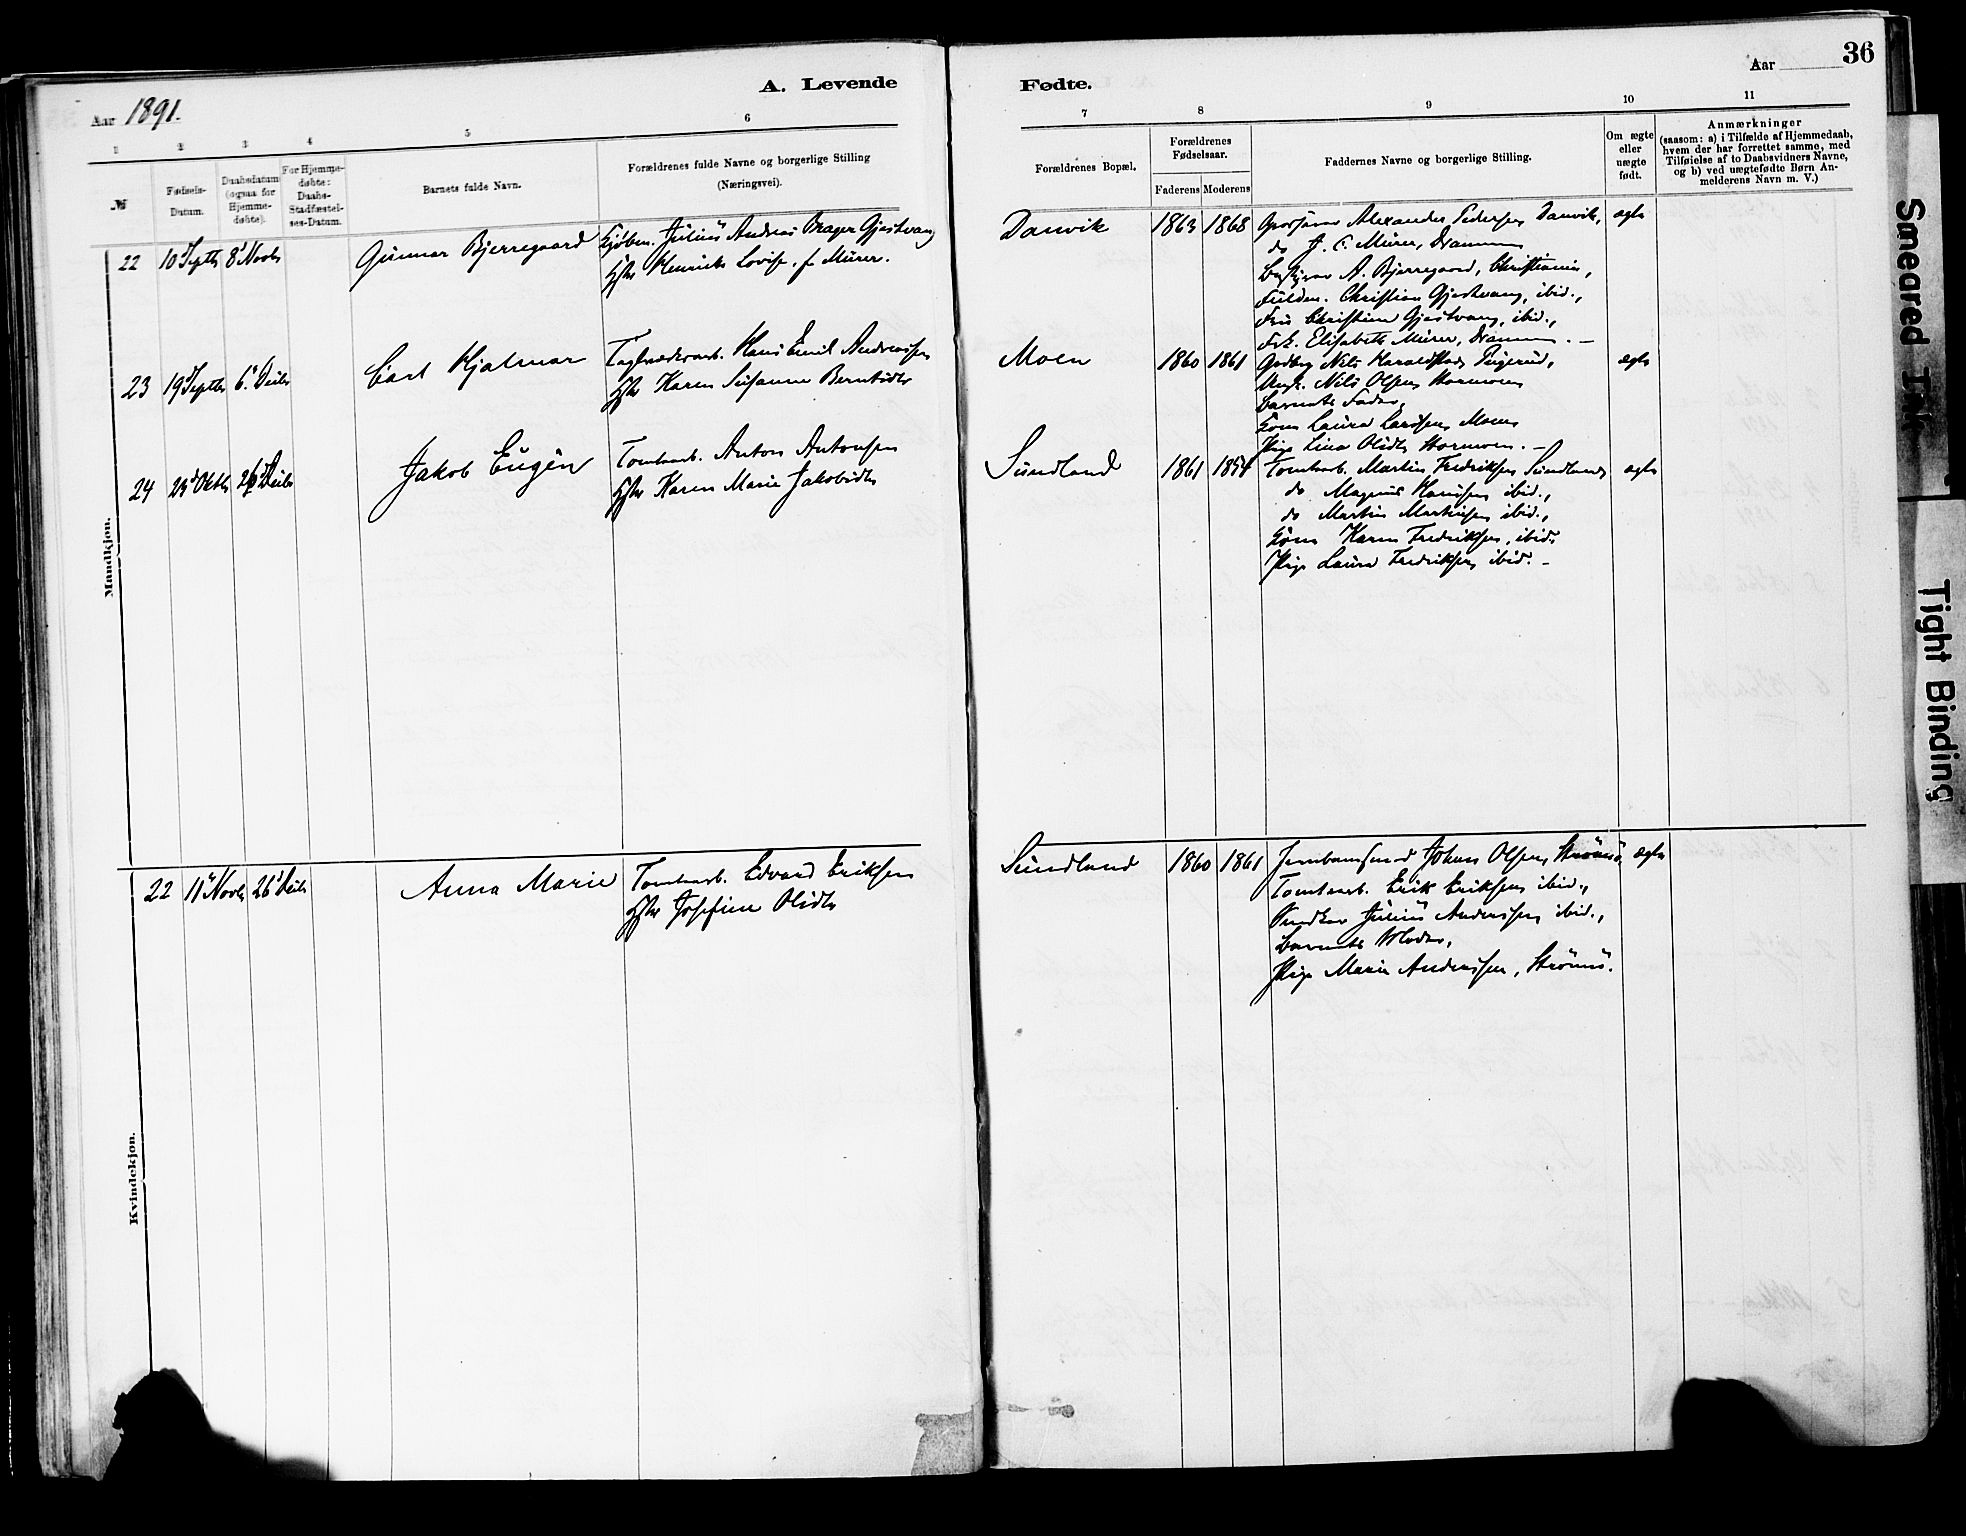 36
Aar 1891.
A. Levende
Fødte.
Aar
1 2 3 4 5 6
7 8 9 10 11
№
Fødsels-
Datum.
Daabsdatum
(ogsaa for
Hjemme-
døbte).
For Hjemme-
døbte:
Daabs-
Stadfæstel-
ses-Datum.
Barnets fulde Navn.
Forældrenes fulde Navne og borgerlige Stilling
(Næringsvei).
Forældrenes Bopæl.
Forældrenes
Fødselsaar.
Faderens Moderens
Faddernes Navne og borgerlige Stilling.
Om ægte
eller
uægte
født.
Anmærkninger
(saasom: a) i Tilfælde af Hjemmedaab,
hvem der har forrettet samme, med
Tilføielse af to Daabsvidners Navne,
og b) ved uægtefødte Børn An-
melderens Navn m. V.)
Mandkjøn.
22 10 Septb 8 Novb
Gunnar Bjerregaard
Kjøbm. Julius Andreas Brager Gjestvang
Hstr Henriette Lovise f. Mürer.
Danvik 1863 1868
Alexander Pedersen Danvik,
do J. C. Mürer, Drammen
Bestyrer A. Bjerregaard, Christiania,
Fuldm. Christian Gjestvang, ibid.,
Fru Christine Gjestvang, ibid.,
Frk. Elisabeth Mürer, Drammen. –
ægte
23 19 Septb 6 Decb
Carl Hjalmar
Hans Emil Andreassen
Hstr Karen Susanne Berntsdtr
Moen 1860 1861
Nils Haraldstad
Ungk. Nils Olsen Hormoen
Barnets Fader,
Kone Laura Larssen Moen
Pige Lina Olsdtr Hormoen. –
ægte
24 23 Oktb 26 Decb
Jakob Eugèn
Tomtearb. Anton Antonsen
Hstr Karen Marie Jakobsdtr
Sundland 1861 1854
Tomtearb. Martin Fredriksen Sundland,
do Magnus Hansen ibid.,
do Martin Martinsen ibid.,
Kone Karen Fredriksen, ibid.
Pige Laura Fredriksen ibid. –
ægte
Kvindekjøn.
22 11 Novb 26 Decb
Anna Marie
Tomtearb. Edvard Eriksen
Hstr Josefine Olsdtr
Sundland 1860 1861
Johan Olsen Strømsø
Tomtearb. Erik Eriksen ibid.,
Snedker Julius Anderssen ibid.,
Barnets Moder,
Pige Marie Anderssen, Strømsø.
ægte
Smeared Ink
Tight Binding